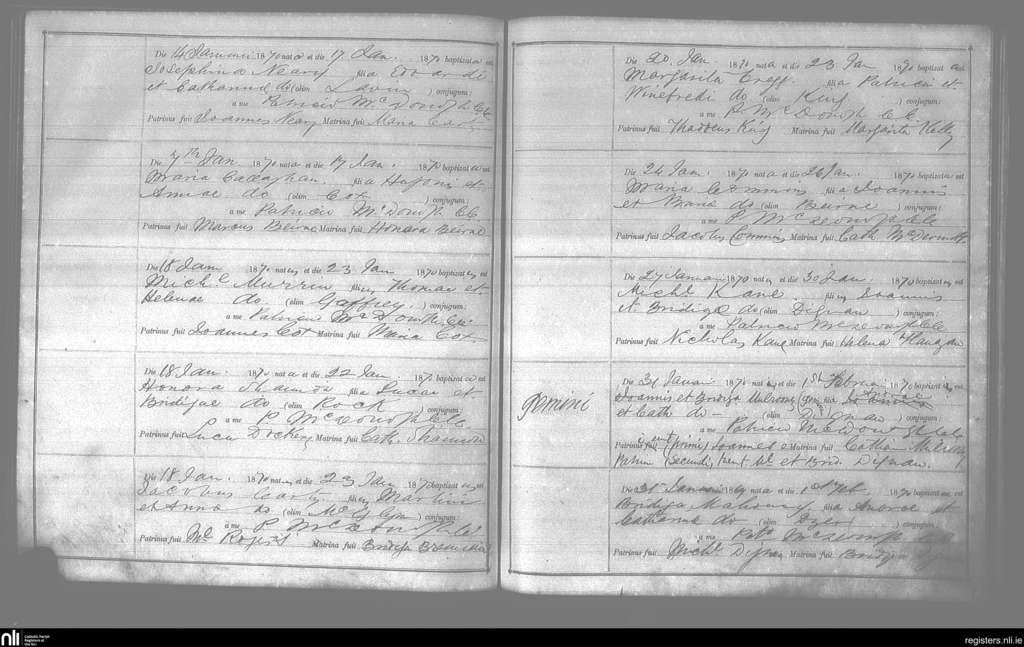 Die 14 Januarii 1870 nata et die 17 Jan. 1870 baptizata est
Josephina Neary filia Edwardi
et Catharinae do (olim Lavin ) conjugum:
a me Patricio McDonogh CC
Patrinus fuit Joannes Neary Matrina fuit Maria
Die 7th Jan. 1870 nata et die 17 Jan. 1870 baptizata est
Maria Callaghan filia et
Annae do (olim Cox ) conjugum:
a me Patricio McDonogh CC
Patrinus fuit Marcus Beirne Matrina fuit Honora Beirne
Die 18 Jan 1870 natus et die 23 Jan 1870 baptizatus est
Michl Murrin filius Thomae et
Helenae do. (olim Gaffney. ) conjugum:
a me Patricio McDonogh CC
Patrinus fuit Joannes Cox Matrina fuit Maria Cox
Die 18 Jan. 1870 nata et die 22 Jan 1870 baptizata est
Honora Shannon filia Lucae et
Bridgae do (olim Rock ) conjugum:
a me P McDonogh CC
Patrinus fuit Luca Matrina fuit Cath. Shannon
Die 18 Jan. 1870 natus et die 23 Jan 1870 baptizatus est
Jacobus filius Martini
et Anna do (olim ) conjugum:
a me P McDonogh
Patrinus fuit Ml Rogers Matrina fuit Bridga
Die 20 Jan. 1870 nata et die 23 Jan 1870 baptizata est
Margarita Gregg filia Patricii et
Winefredi do (olim King ) conjugum:
a me P McDonogh C.C.
Patrinus fuit Thaddeus King Matrina fuit Margarita Kelly
24 Jan. 1870 nata et die 26 Jan. 1870 baptizata est
Maria Commons filia Joannis
et do (olim Beirne ) conjugum:
a me P McDonogh CC
Patrinus fuit Jacobus Commins Matrina fuit Cath McDermott
Die 27 Januarii 1870 natus et die 30 Jan 1870 baptizatus est
Michl Kane filius Joannis
et Bridgae do (olim Dignan ) conjugum:
a me Patricio McDonogh CC
Patrinus fuit Nicholas Kane Matrina fuit Helena Flanagan
gemini
Die 31 Januarii 1870 nati et die 1st Februarii 1870 baptizati
Joannis et Bridga Mulrony
et Cath. do - (olim Dignan ) conjugum:
a me Patricio McDonogh
Patrinus fuit (primi) Joannes Matrina fuit Mulrony
Patrini Secundi, fuerunt et Brid. Dignan.
Die 31 Januarii 1870 nata et die 1st Feb. 1870 baptizata est
Bridga Mahony filia Andreae et
Catharina do (olim ) conjugum:
a me McDonogh
Patrinus fuit Michl Dignan Matrina fuit Bridga
nli Catholic Parish Registers at the NLI
registers.nli.ie